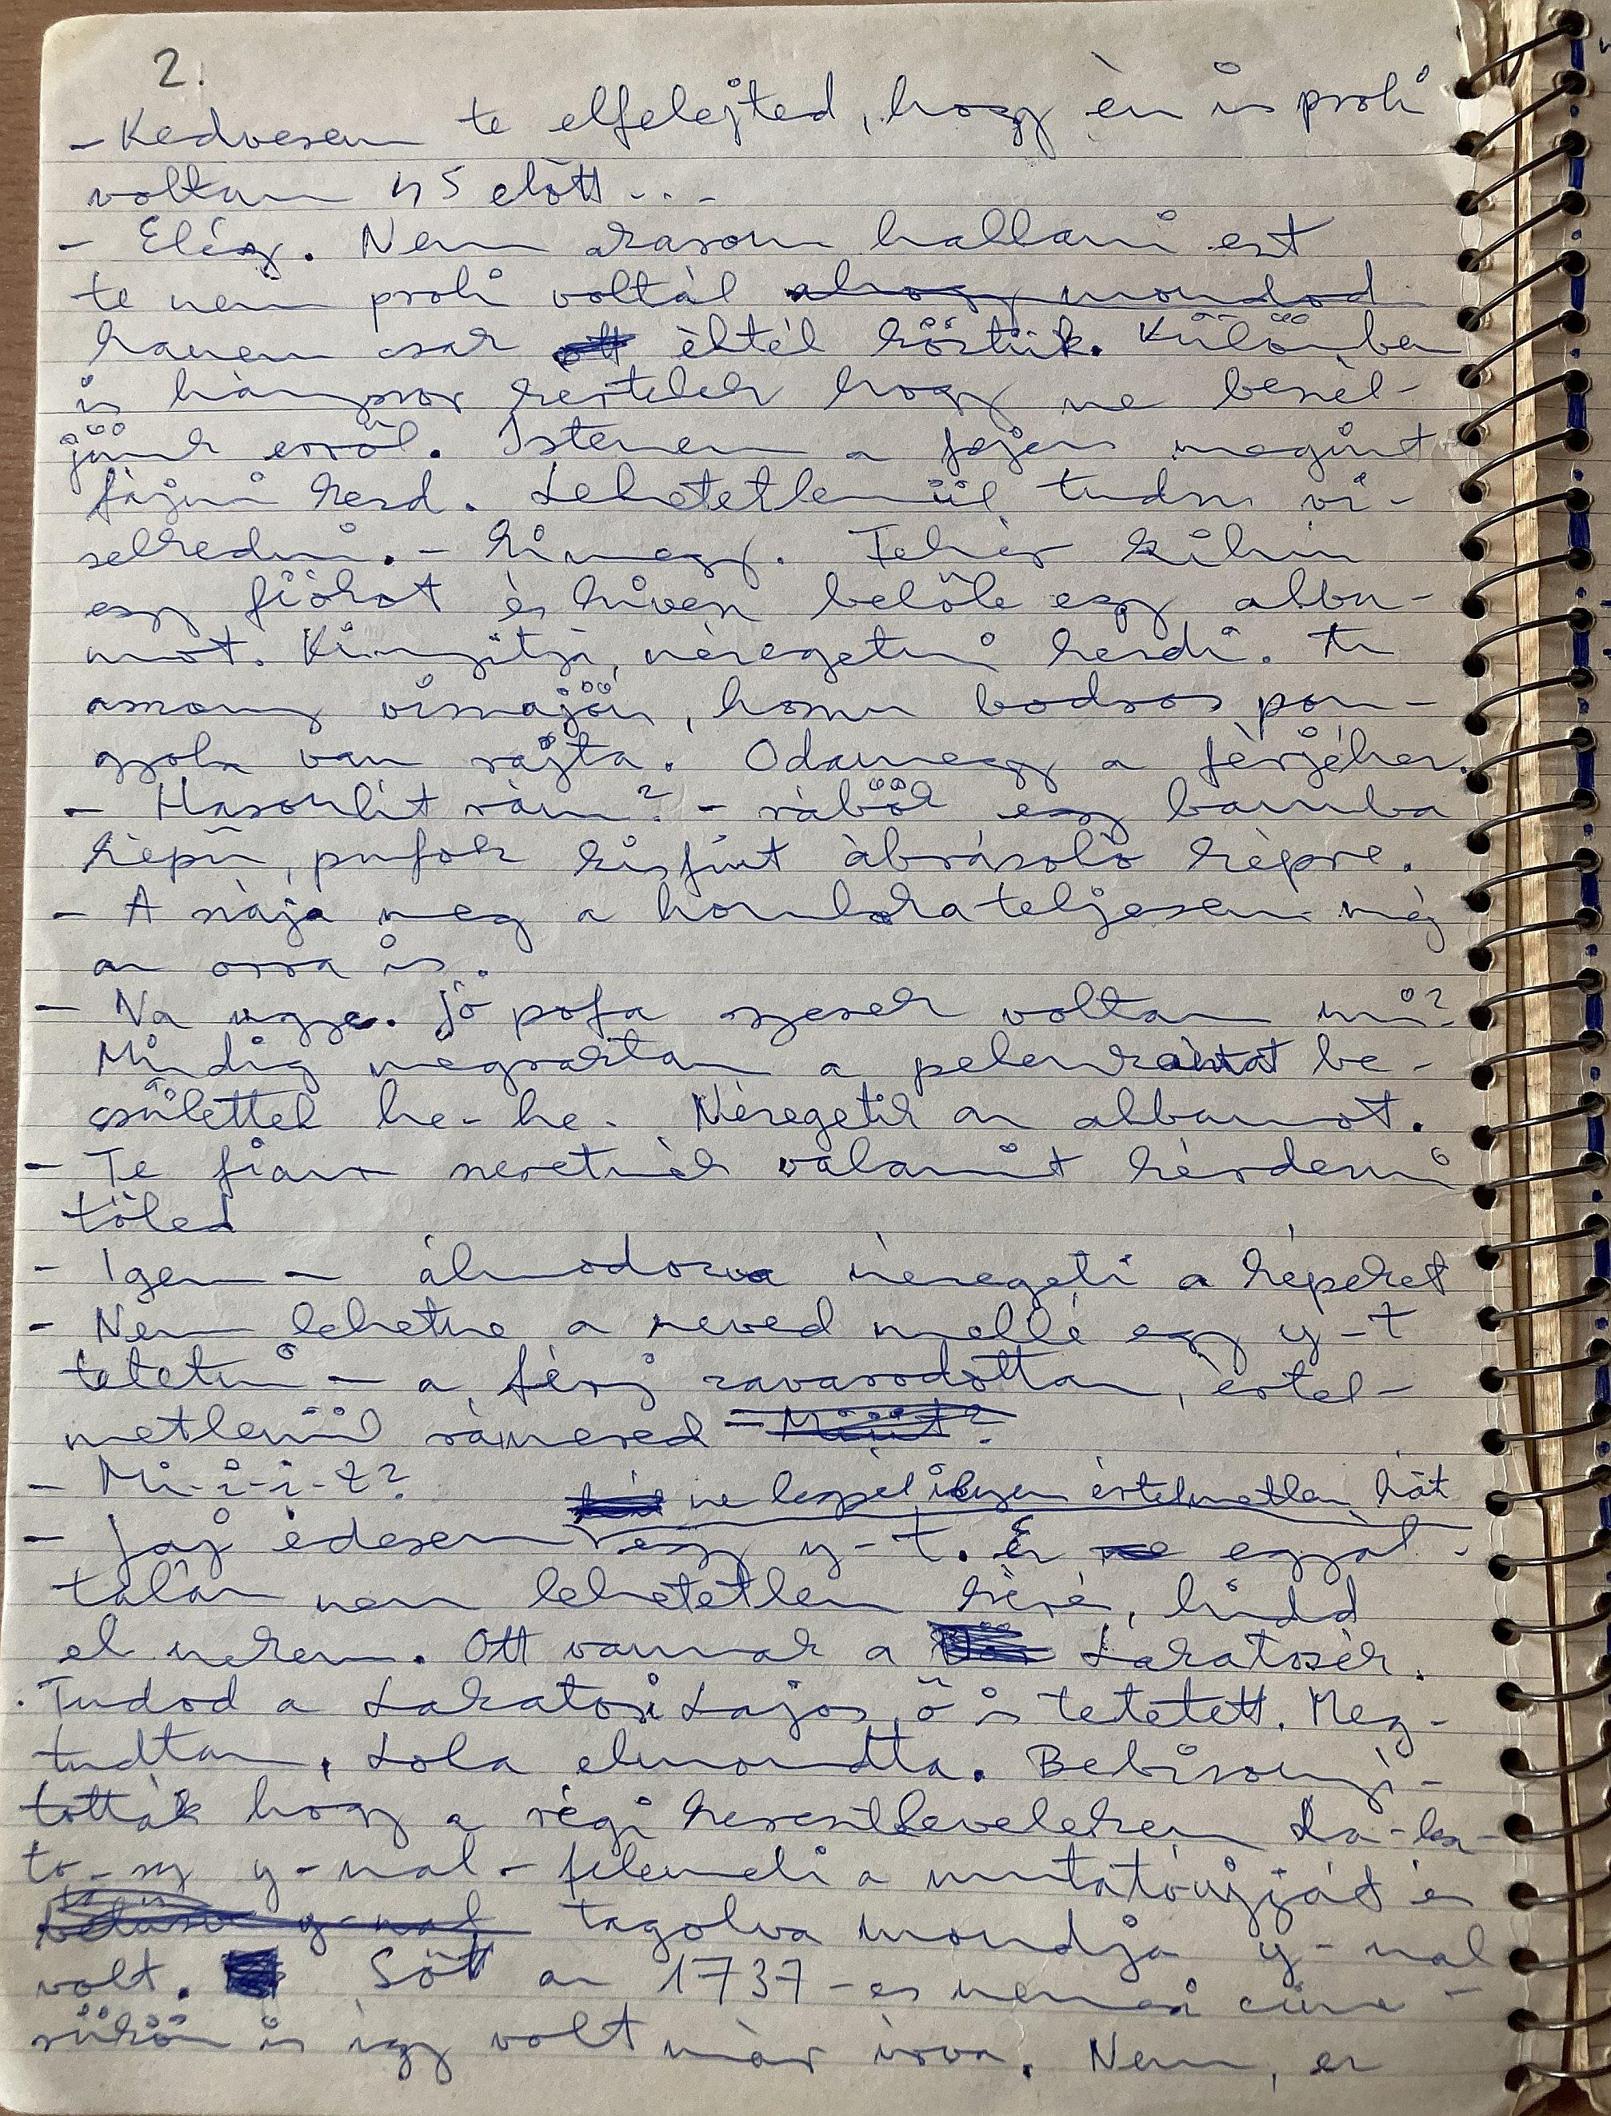 2.
- Kedvesem te elfelejted, hogy én is proli
voltam 45 előtt...
- Elég. Nem akarom hallani ezt
te nem proli voltál ahogy mondod
hanem csak ott éltél köztük. Külömben
is hányszor kértelek hogy ne beszél-
jünk erről. Istenem a fejem megint
fájni kezd. Lehetetlenül tudsz vi-
selkedni. - kimegy. Fehér kihúz
egy fiókot és kivesz belőle egy albu-
mot. Kinyitja, nézegetni kezdi. Az
asszony visszajön, hosszu bodros pon-
gyola van rajta. Odamegy a férjéhez.
- Hasonlit rám? - ráböK egy bamba
képű, pufok kisfiut ábrázoló képre.
- A szája meg a homloka teljesen még
az orra is.
- Na ugye. Jó pofa gyerek voltam mi?
Mindig megraktam a pelenkámat be-
csülettel he-he. Nézegetik az albumot.
- Te fiam szeretnék valamit kérdezni
tőled
- Igen - álmodozva nézegeti a képeket
- Nem lehetne a neved mellé egy y-t
tetetni - a férj zavarodottan, értel-
metlenül rámered - Miiit?
- Mi-i-i-i-t?
ne legyél ilyen értelmetlen hát
- Jaj édesem egy y-t. Ez egyál-
talán nem lehetetlen kérés, hidd
el nekem. Ott vannak a Lakatosék.
Tudod a Lakatosi Lajos, ő is tetetett. Meg-
tudtam, Lola elmondta. Bebizonyí-
tották hogy a régi keresztlevelekem La-ka-
to-sy y-nal - felemeli a mutatóujját és
y-nal tagolva mondja y-nal
volt. Sőt az 1737-es nemesi címe-
rükön is így volt már írva. Nem, ez